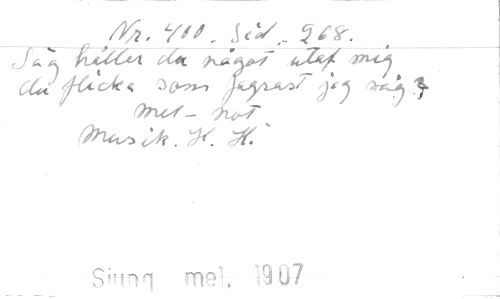 Nr. 400. Sid. 268.
Säg håller du något utaf mig
du flicka som fagrast jag såg?
mel-not
Musik. H. H.
Sjung mel. 1907